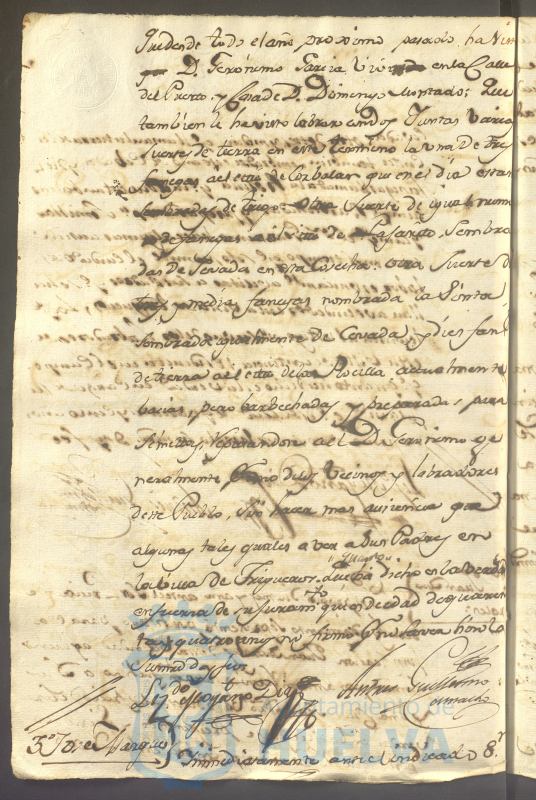 Que desde todo el año proximo pasado ha vis
que D. Geronimo Garcia vivio en la Calle
del Puerto, y Casa de D. Domingo Montado; Que
tambien le ha visto labrar con dos Juntas varias
suertes de tierra en este termino la una de tres
fanegas al sitio de que en el dia estan
sembradas de trigo otra suerte de igual nume
de fanegas al sitio de Sembra
das de Sevada en esta Cosecha: otra suerte de
tres y media fanegas nombrada la
sembrada igualmente de Cevada, y dies fan
de tierra al sitio de la Rocilla actualmente
bacias, pero barbechadas y preparadas para
Semillas, reputandose al D. Geronimo ge
neralmente como de los Vecinos y labradores
de este Pueblo, sin hacer mas ausencia que
algunas tales quales a ver a sus Padres en
la Villa de Trigueros. Que lo dicho es la verdad
en fuerza de su juramto. que es de edad de quaren
ta y quatro años y lo firmo
Su md. doy fee
Lizdo. Moyano Dias Antres Guillermo
Camacho
3º Jose Marquez Inmediatamente ante el indicado S.r
Ayuntamiento de
HUELVA